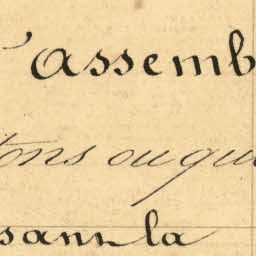 assemb
tons ou qu
sann la